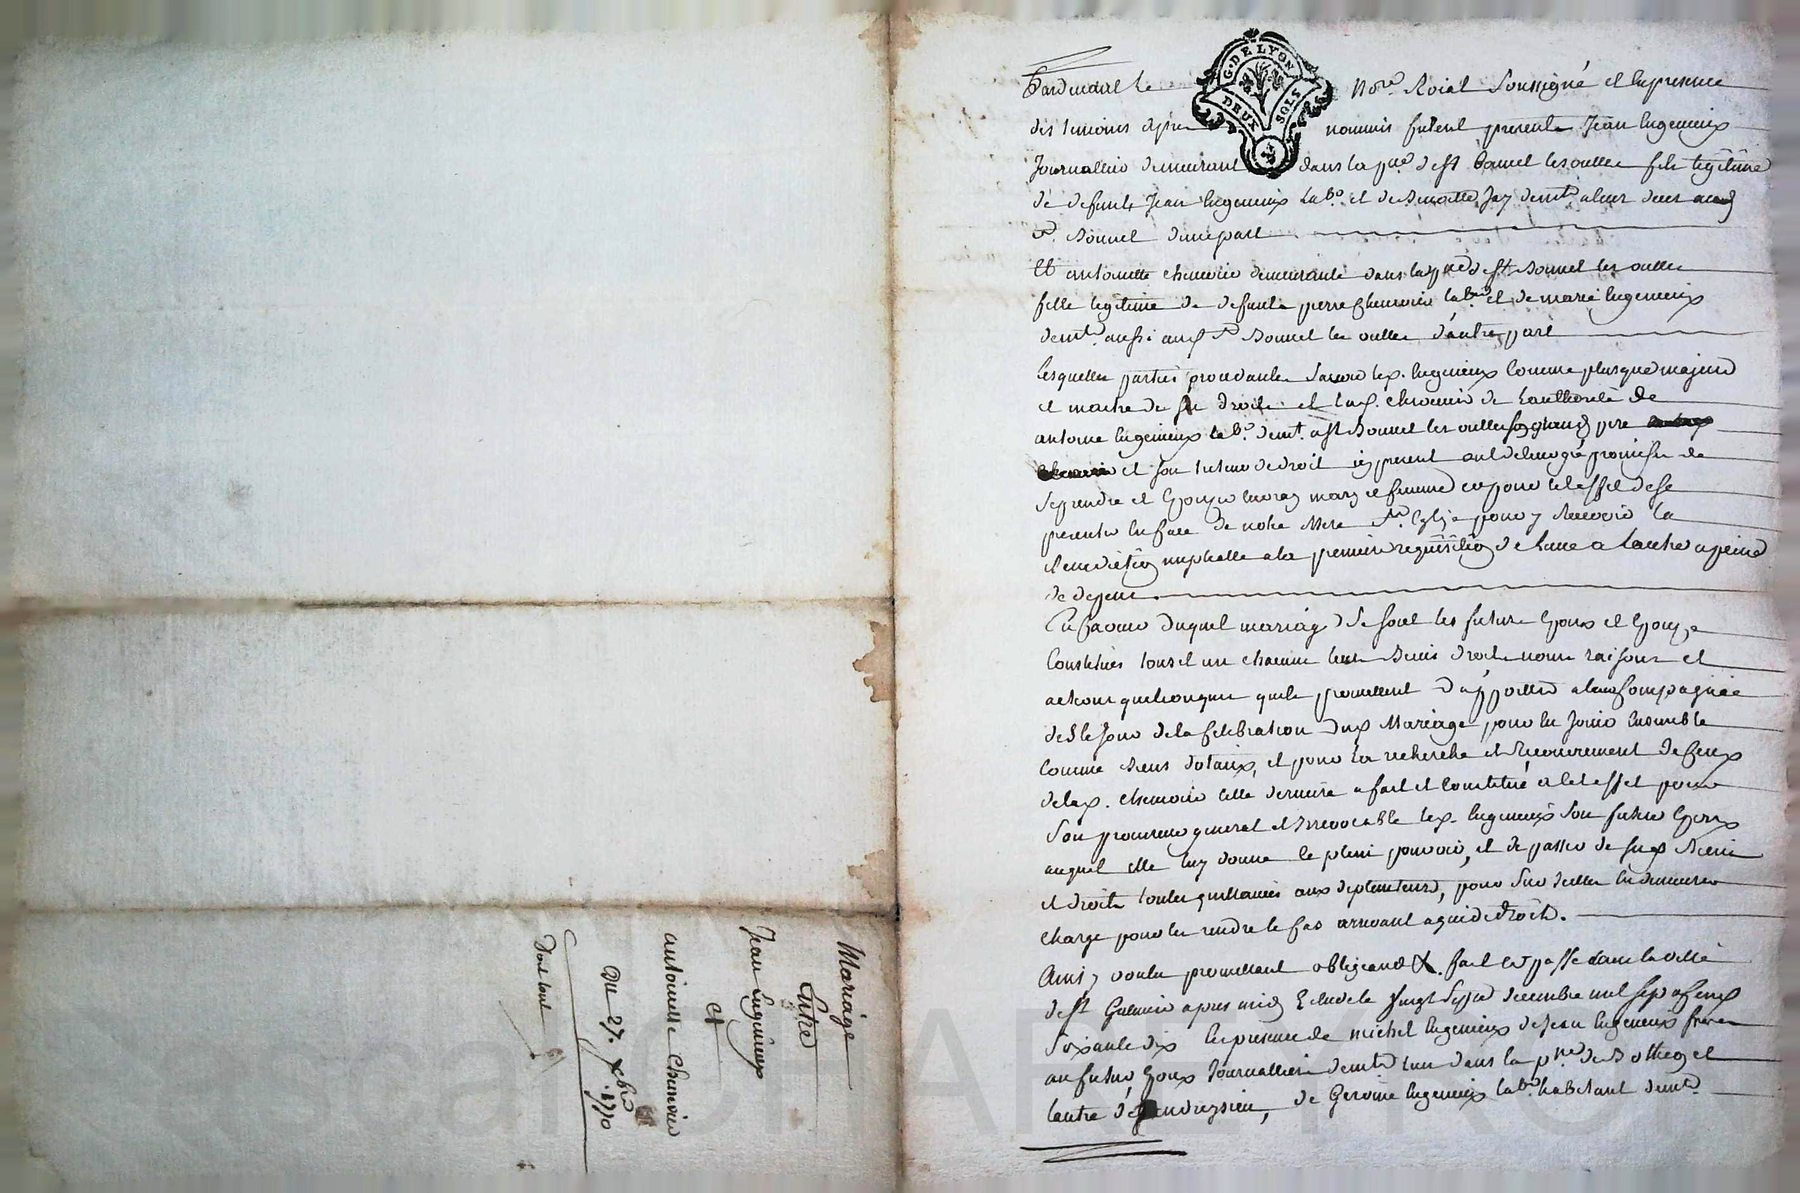 Pardevant le Nore. Roial soussigné et En presence
des temoins apres nommés furent presents Jean Ingenieux
Journallier demeurant dans la psse. de st Bonnet les oulles fils legitime
de defunts Jean Ingenieux Labo. et de Benoitte Jay demts. a leur
st. Bonnet d'une part
Et antoinette chemorin demeurante dans la psse de st Bonnet les oulles
fille legitime de defunt pierre chemorin labr et de marie Ingenieux
demte. aussi aud st. Bonnet les oulles d'autre part
lesquelles parties procedantes savoir led. Ingenieux Comme plus que majeur
et maitre de ses droits et lad. chemorin de l'authorité de
antoine Ingenieux labo. demt. a st Bonnet les oulles son grand pere
et son de droit cy present ont de leur gré promis de
se prendre et Epouzer En vrays mary et femme et pour cet effet de se
presenter En face de notre Mere ste. Eglize pour y Recevoir la
Benediction nuptialle a la premiere requisition de l'une a l'autre a peine
de depens.
En faveur duquel mariage se sont les futurs Epoux et Epouze
Constitués tous et un chacuns leurs Biens droits noms raisons et
actions quelconques qu'ils promettent d'apporter a leur Compagnie
des le Jour de la Celebration dud Mariage pour En Jouir Ensemble
comme Biens dotaux, et pour la recherche et Recouvrement de Ceux
de lad. chemorin cette derniere a fait et Constitué a cet effet pour
son procureur general et Irrevocable led. Ingenieux son futur Epoux
auquel elle luy donne le plein pouvoir, et de passer de sesd Biens
et droits toutes quittances aux depteurs, pour sur Icelles En demeurer
charge pour les rendre le cas arrivant a qui de droit.
Ainsy voulu promettant obligeant &. fait et passé dans la ville
de st Galmier apres midy Etude le vingt sept decembre mil sept cent
soixante dix En presence de michel Ingenieux de Jean Ingenieux freres
au futur Epoux Journalliers demts l'un dans la psse de Botheon et
l'autre d'andrezieu, de Gerome Ingenieux labr. habitant demt.
Mariage
Entre
Jean Ingenieux
et
antoinette Chemorin
Du 27. Xbre 1770